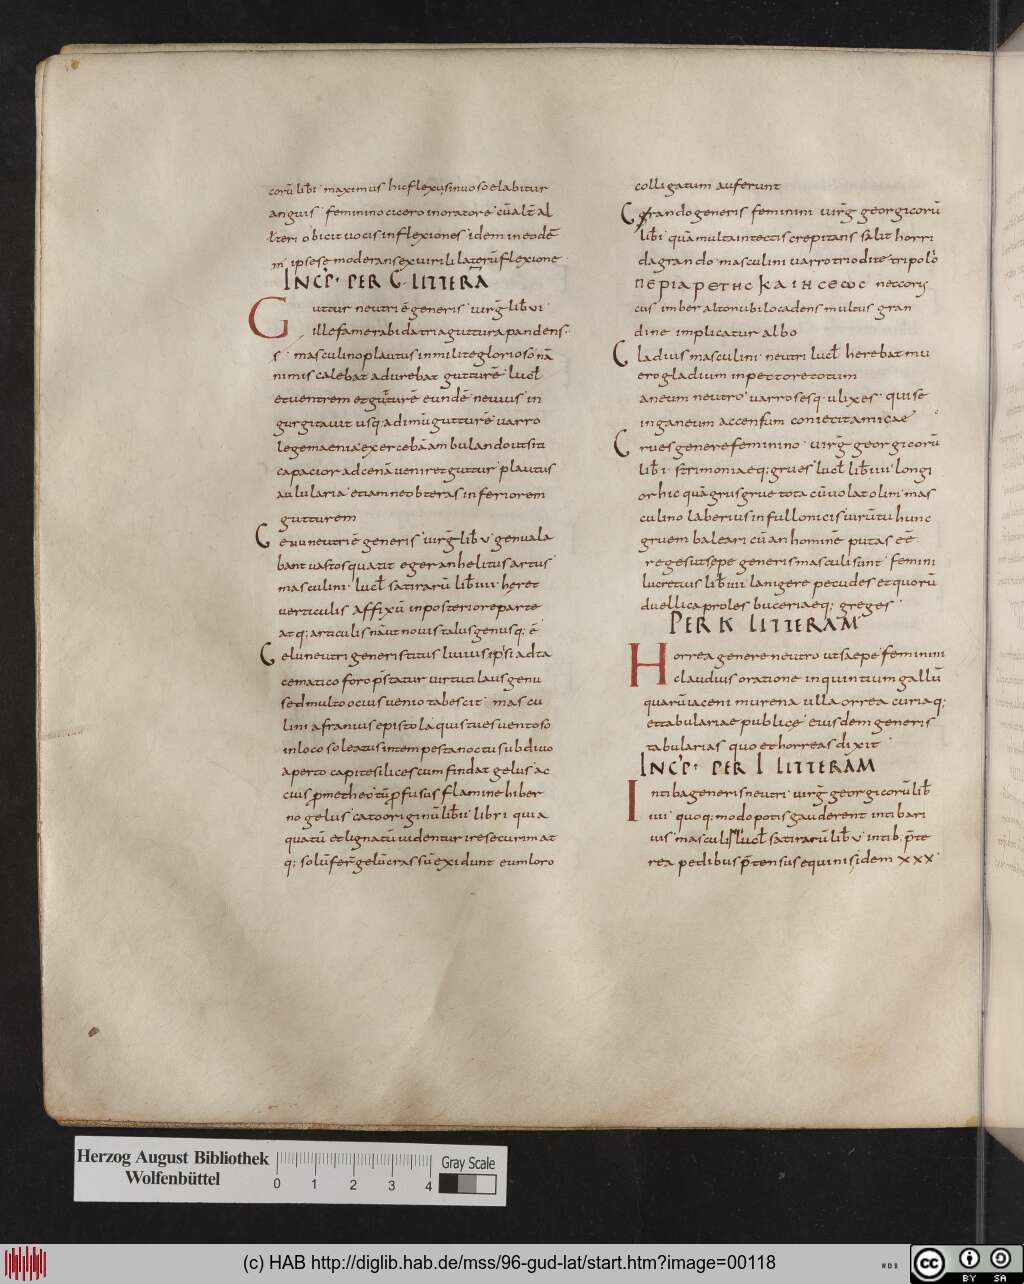 corũ lib̃i · maximus hicflexusinuosoelabitur
anguis · feminino cicero in oratore · cũ alt̃ al
lt̃eri obicit uocis inflexiones · idem ineodẽ
m̃ ipsesemoderansexuirili laterũflexione ·
INCP̃ · PER G · LITTERÃ
Guttur neutri ẽ generis · uirg̃ lib̃ VI ·
ille fame rabida tria guttura pandens ·
s · masculinoplautus inmilitegloriosonã
nimis calebat adurebat gutturẽ · lucl̃
etuentrem et gutturẽ eundẽ neuius in
gurgitauit usq; adimũ gutturẽ uarro
legemaenia exercebãambulandoutsiti
capacior adcenã ueniretguttur · plautus
aulularia · etiamneobteras inferiorem
gutturem
Genuneutriẽ generis · uirg̃ lib̃ v · genuala
bant uastosquatit eger anhelitus artus
masculini · lucl̃ satirarũ lib̃ IIII · heret
uerticulis affixũ inposterioreparte
atq; articulis nãut nouis talusgenusq; ẽ
Geluneutri generis titus liuius ipsi adta
cematico foro p̃statur uirtuti laus genu
sedmulto ocius uenio tabescit · mascu
lini afranius epistola quis tues uentoso
inloco soleatusintempestanoctusubdiuo
aperto capitesilicescumfindat gelus · ac
cius prometheo tũ profusus flamine hiber
no gelus · catooriginũ lib̃ II · libri quia
quatũ etlignatũ uidentur iresecurim at
q; solũ fer̃ gelũ cras sũ exidunt eumloro
colligatum auferunt
Grandogeneris feminini uirg̃ georgicorũ
lib̃i · quã multaintectis crepitans salit horri
dagrando · masculini uarrotriodite tripolo
ΠΕΡΙΑΡΕΤΗС ΚΑΙΗСΕΩС · neccoris
cus imber altonubilocadens multus gran
dine implicatur albo
Gladius masculini · neutri lucl̃ herebat mu
erogladium inpectoretotum
aneum neutro · uarrosesq · ulixes · quise
inganeum accensum coniecitamicae
Grues generefeminino · uirg̃ georgicorũ
lib̃i · strimoniaeq; grues · lucl̃ lib̃ IIII longi
orhic quã grusgrue tota cũuolat olim · mas
culino laberius infullonicis uirũtu hunc
gruem balearicũ an hominẽ putas eẽ ·
regesutsepe generismasculisunt · femini
lucretius lib̃ IIII lanigere pecudes etquorũ
duellica proles buceriaeq; greges ·
PER K LITTERAM
Horrea genere neutro utsaepe · feminini
claudius oratione inquintium gallũ
quarũ iaceni murena · ulla orrea curiaq;
ettabulariae publice · eius dem generis
tabularias quo ethorreas dixit
INCP̃ · PER I LITTERAM
Intibageneris neutri · uirg̃ georgicorũ lib̃
IIII · quoq; modo potis gauderent intibari
uis · masculini lucl̃ satirarũ lib̃ v · intib; p̃te
rea pedibus p̃tensus equinis · idem XXX ·
Herzog August Bibliothek
Wolfenbüttel
0 1 2 3 4
Gray Scale
(c) HAB http://diglib.hab.de/mss/96-gud-lat/start.htm?image=00118
WDB
cc BY SA